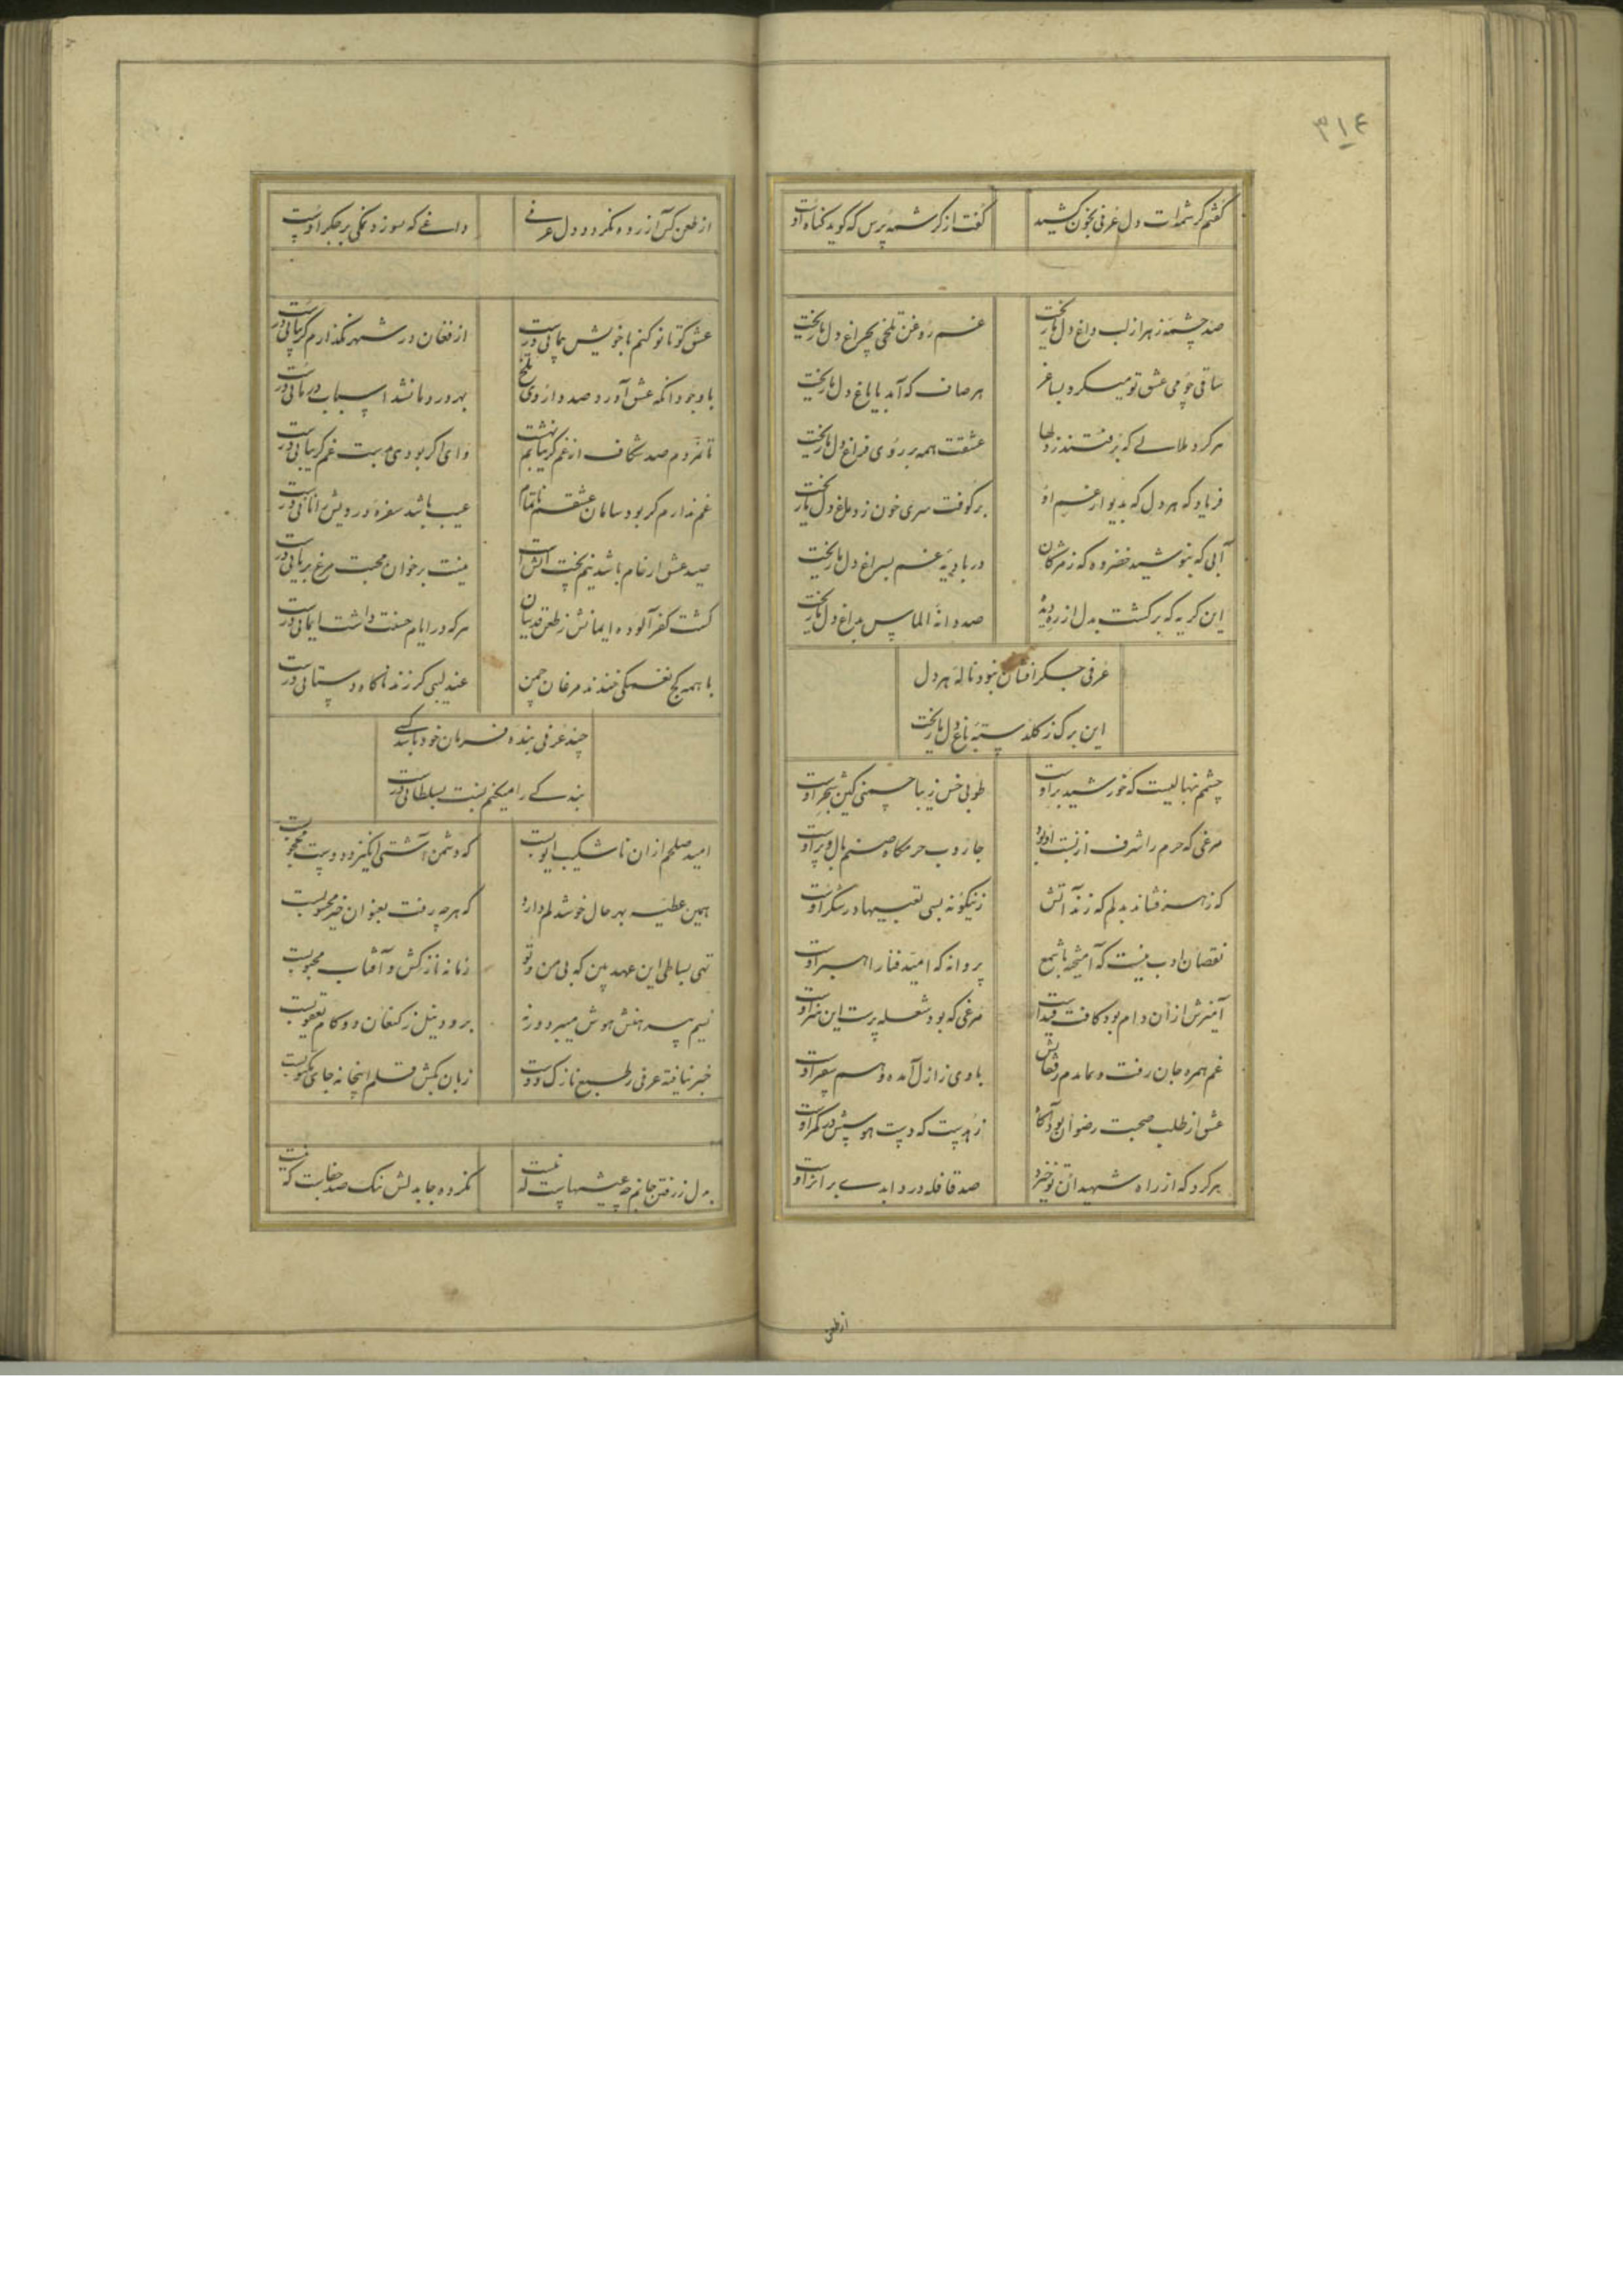 ۳۱۴
گفتم کرشمه‌ات دل عرفی بخون کشید
گفت از کرشمه پرس که گوید گناه اوست
صد چشمه زهر از لب داغ دل ما ریخت
غم روغن تلخی بچراغ دل ما ریخت
ساقی چو می عشق تو میکرد بساغر
هر صاف که آمد بایاغ دل ما ریخت
هر گرد ملالی که برفتند ز دلها
عشقت همه بر روی فراغ دل ما ریخت
فریاد که هر دل که بدیوار غم او
برکوفت سری خون ز دماغ دل ما ریخت
آبی که ننوشید خضر وه که ز مژگان
در بادیه غم بسراغ دل ما ریخت
این گریه که برگشت بدل از ره دیده
صد دانه الماس بداغ دل ما ریخت
عرفی جگر افشان نبود ناله هر دل
این برگ ز گلدسته باغ دل ما ریخت
چشمم نهالیست که خورشید بر اوست
طوبی خس زیبا چمنی کین شجر اوست
مرغی که حرم را شرف از نسبت او بود
جاروب حرمگاه صنم بال و پر اوست
که زهر فشاند بدلم که زند آتش
زینگونه بسی تعبیها در شکر اوست
نقصان ادب نیست که آمیخته با شمع
پروانه که امید فنا راهبر اوست
آمیزش ازان دام بود کافت قید است
مرغی که بود شعله پرست این هنر اوست
غم همره جان رفت و نماندم ز قفایش
با وی ز ازل آمده و هم سفر اوست
عشق از طلب صحبت رضوان بود آگاه
زهدیست که دست هوسش در کمر اوست
هر گرد که از راه شهیدان تو خیزد
صد قافله درد ابدی بر اثر اوست
از طعن
از طعن کس آزرده نگردد دل عرفی
داغی که بسوزد نمکی بر جگر اوست
عشق کو تا نو کنم با خویش پیمانی درست
از فغان در شهر نگذارم گریبانی درست
باوجود آنکه عشق آورد صد داروی تلخ
بهر دردم ما نشد اسباب درمانی درست
تا نمردم صد شکاف از غم گریبانم نهشت
وای گر بودی بدست غم گریبانی درست
غم ندارم گر بود سامان عشقم ناتمام
عیب باشد سفره درویش را نانی درست
صید عشق ار خام باشد نیم پخت آتش است
نیست بر خوان محبت مرغ بریانی درست
گشت کفرآلوده ایمانش ز طعن قدسیان
هر که در ایام حسنت داشت ایمانی درست
با همه کج نغمگی خندند مرغان چمن
عندلیبی گر زند ناگاه دستانی درست
چند عرفی بنده فرمان خود باشد کسی
بندگی را میکنم نسبت بسلطانی درست
امید صلحم ازان ناشکیب ایوبست
که دشمن آشتی انگیز و دوست محجوبست
همین عطیه بهر حال خوشدلم دارد
که هر چه رفت بعنوان خیر محسوبست
تهی بساطی این عهد بین که بی من و تو
زمانه نازکش و آفتاب محبوبست
نسیم پیرهنش هوش میبرد ورنه
برود نیل ز کنعان دو گام یعقوبست
خبر نیافته عرفی ز طبع نازک دوست
زبان بکش قلم اینجا نه جای مکتوبست
بدل ز رفتن جانم چه عیشهاست که نیست
نکرده جا بدلش ننگ صد خطابت که نیست